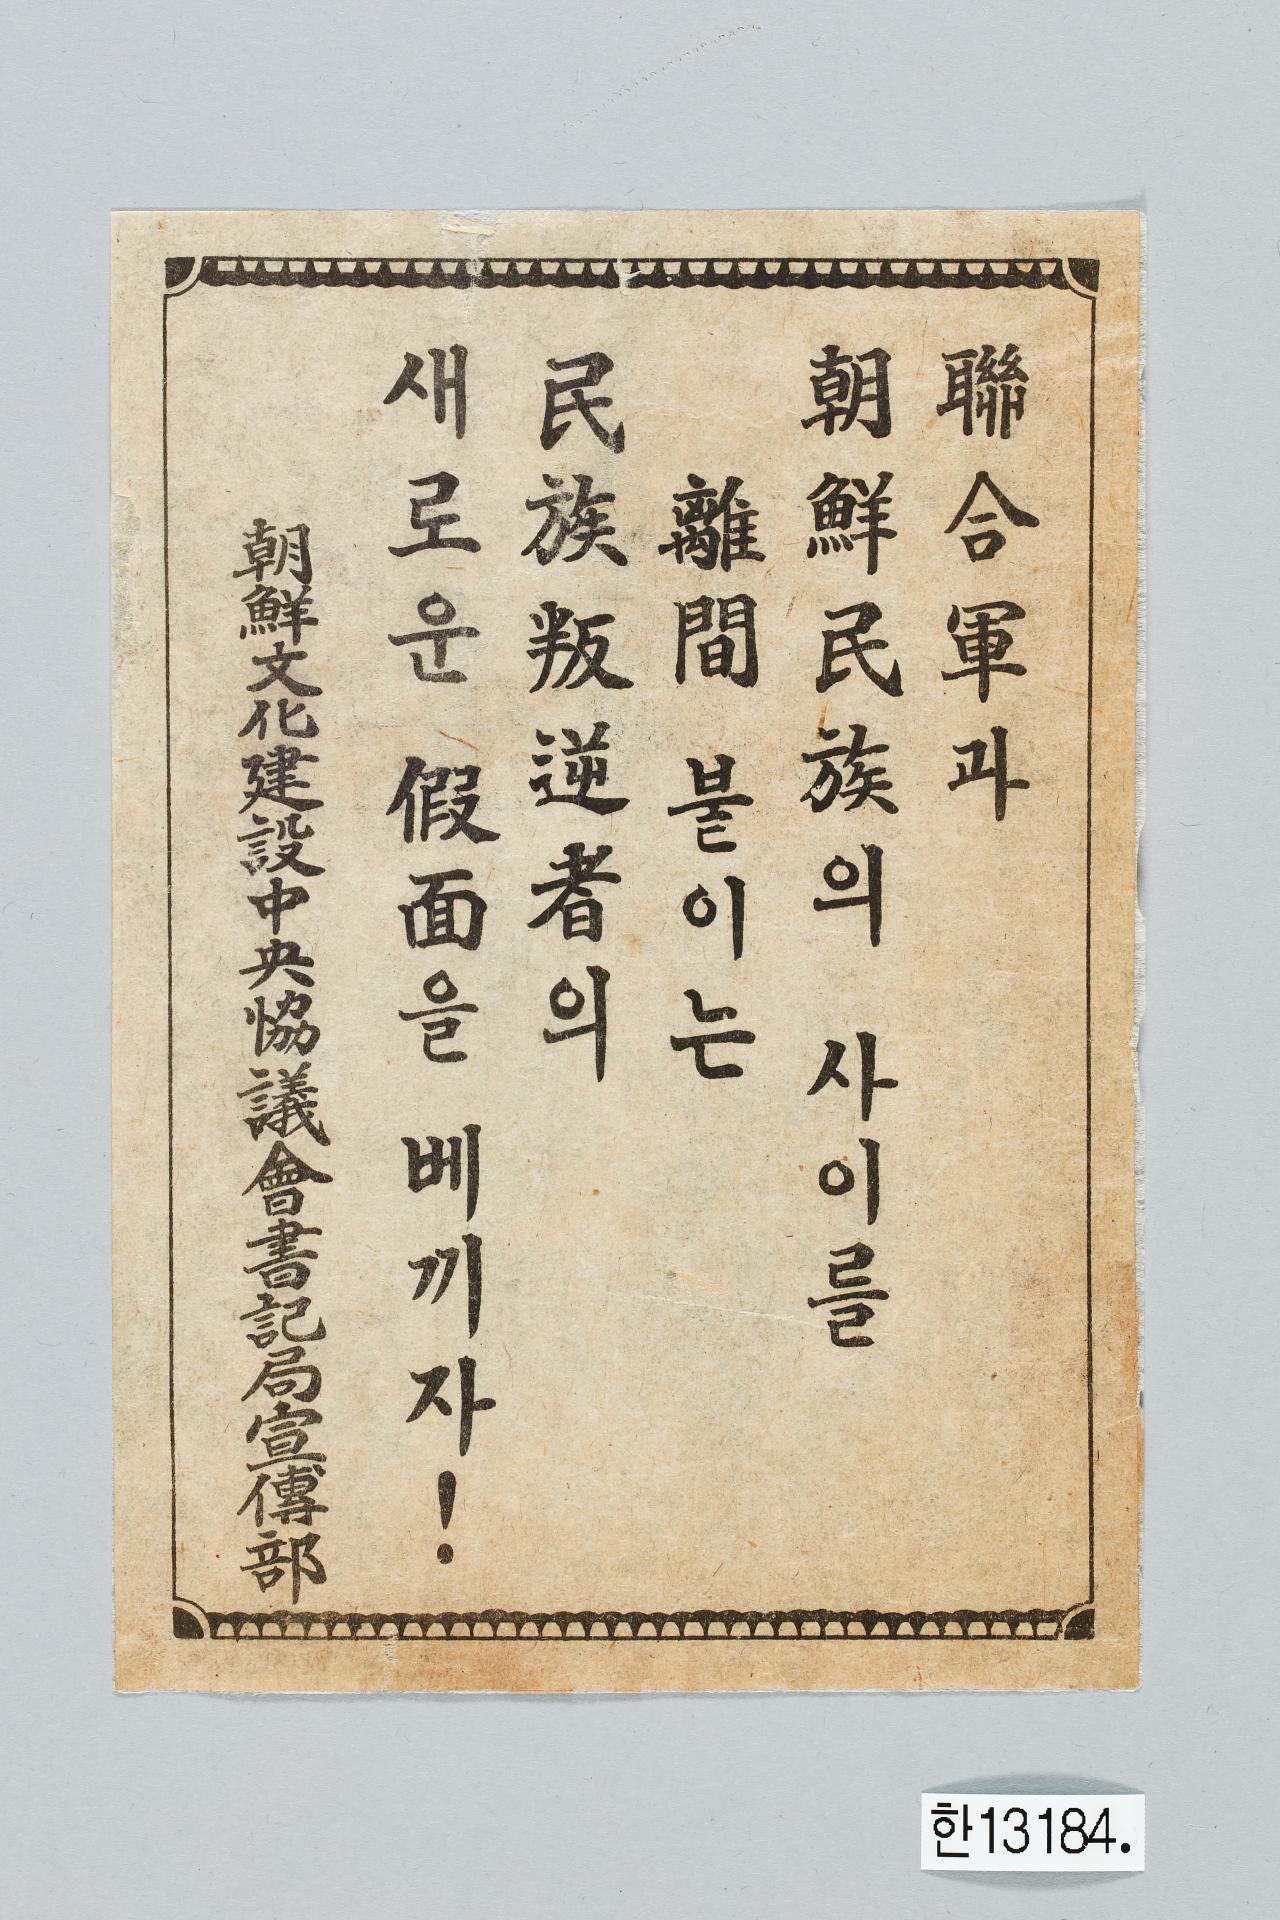 聯合軍과
朝鮮民族의 사이를
離間 붙이는
民族叛逆者의
새로운 假面을 베끼자!
朝鮮文化建設中央協議會書記局宣傳部
한13184.